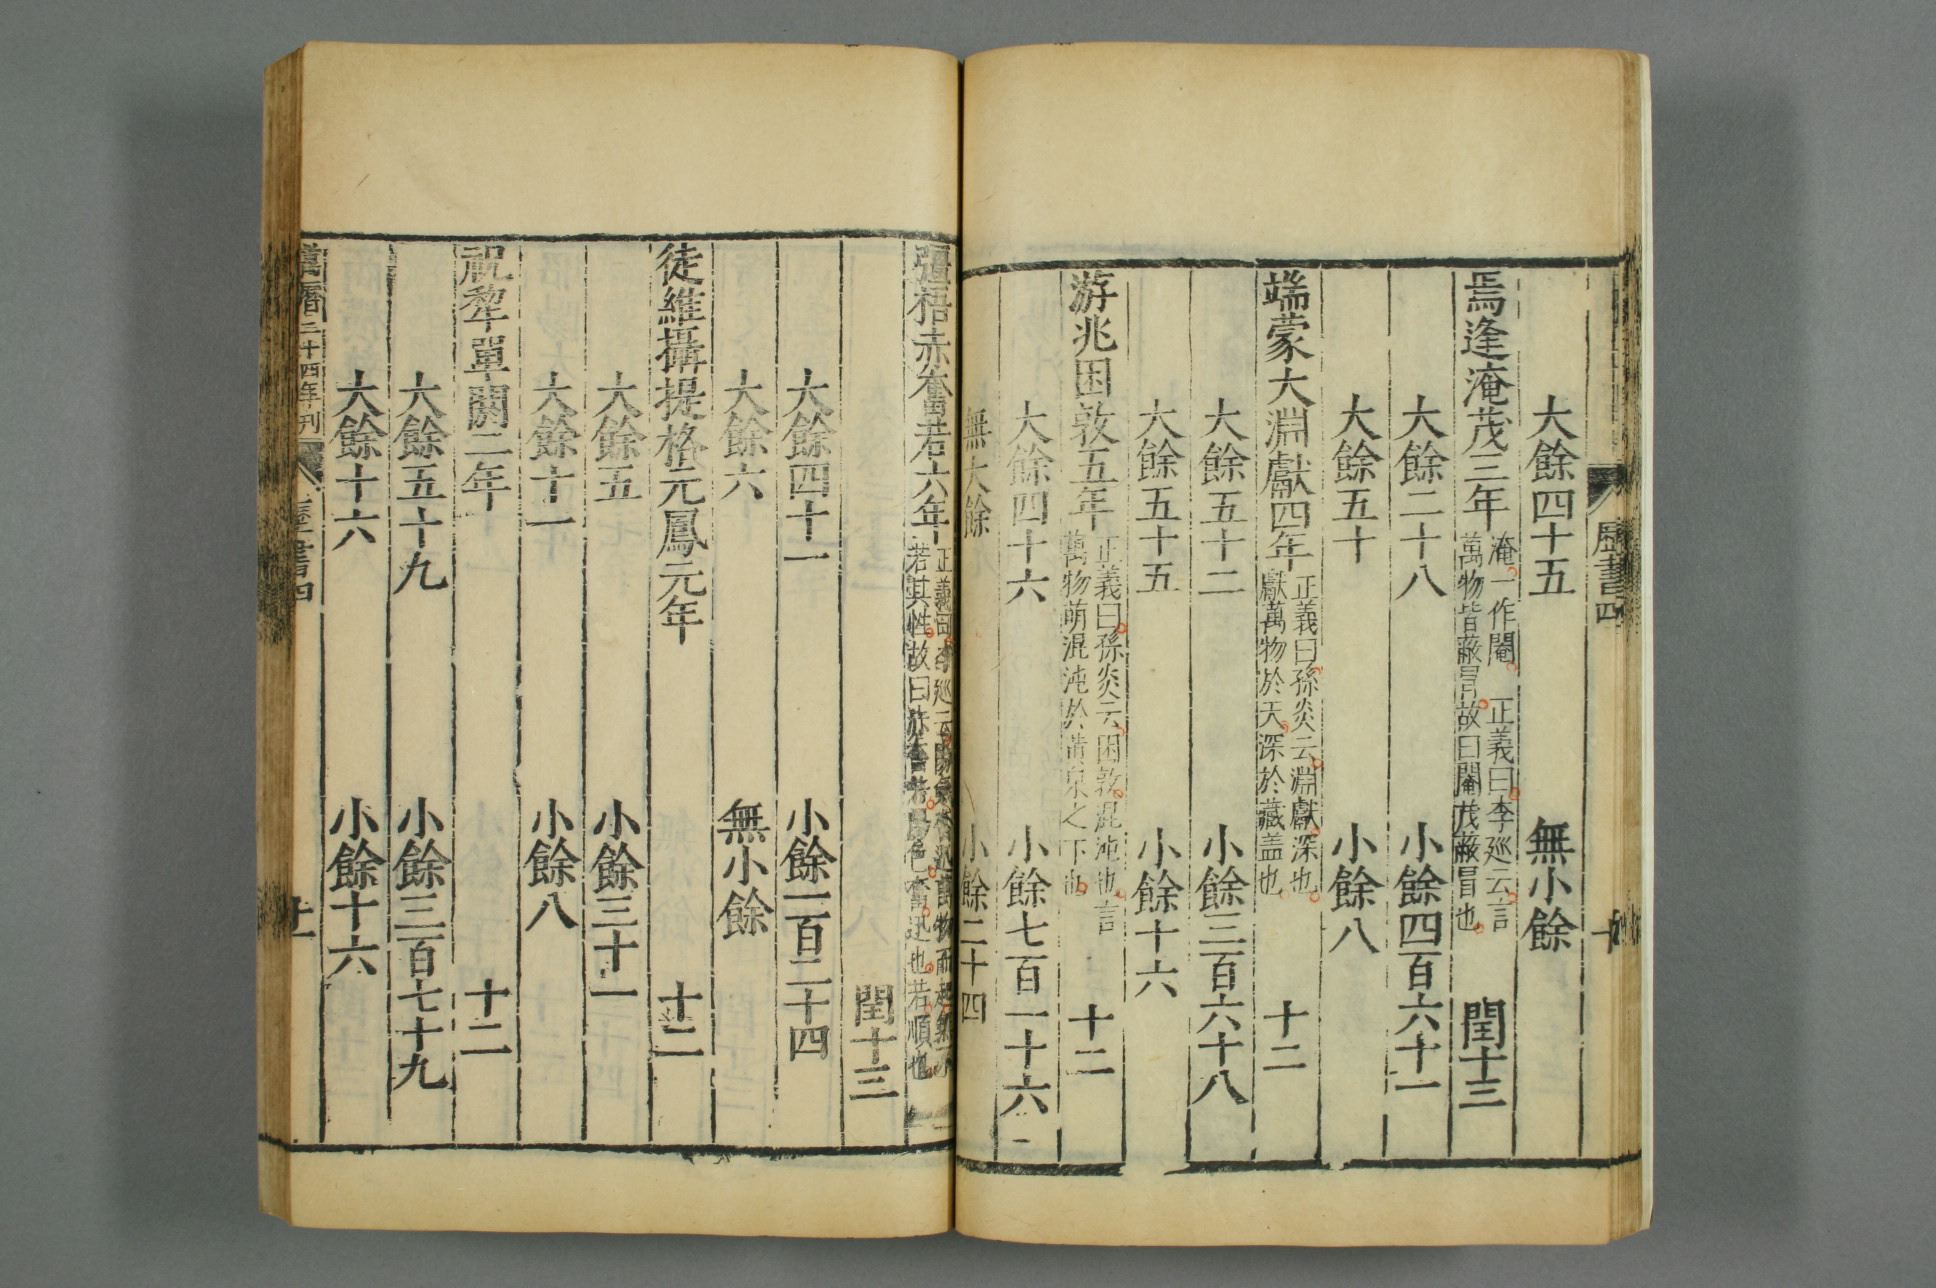 曆書四
十
大餘四十五　無小餘
焉逢淹茂三年　淹一作閹　正義曰李廵云言
萬物皆蔽冐故曰閹茂蔽冒也　閏十三
大餘二十八　小餘四百六十一
大餘五十　小餘八
端蒙大淵獻四年　正義曰孫炎云淵獻深也
獻萬物於天深於藏盖也　十二
大餘五十二　小餘三百六十八
大餘五十五　小餘十六
游兆困敦五年　正義曰孫炎云困敦混沌也言
萬物萌混沌於黃泉之下也　十二
大餘四十六　小餘七百一十六
無大餘　小餘二十四
彊梧赤奮若六年　正義曰李廵云陽氣奮迅萬物而起無不
若其性故曰赤奮若陽色奮迅也若順也
閏十三
大餘四十一　小餘一百二十四
大餘六　無小餘
徒維攝提格元鳳元年　十二
大餘五　小餘三十一
大餘十一　小餘八
祝犂單閼二年　十二
大餘五十九　小餘三百七十九
大餘十六　小餘十六
萬曆二十四年刊
曆書四
十一